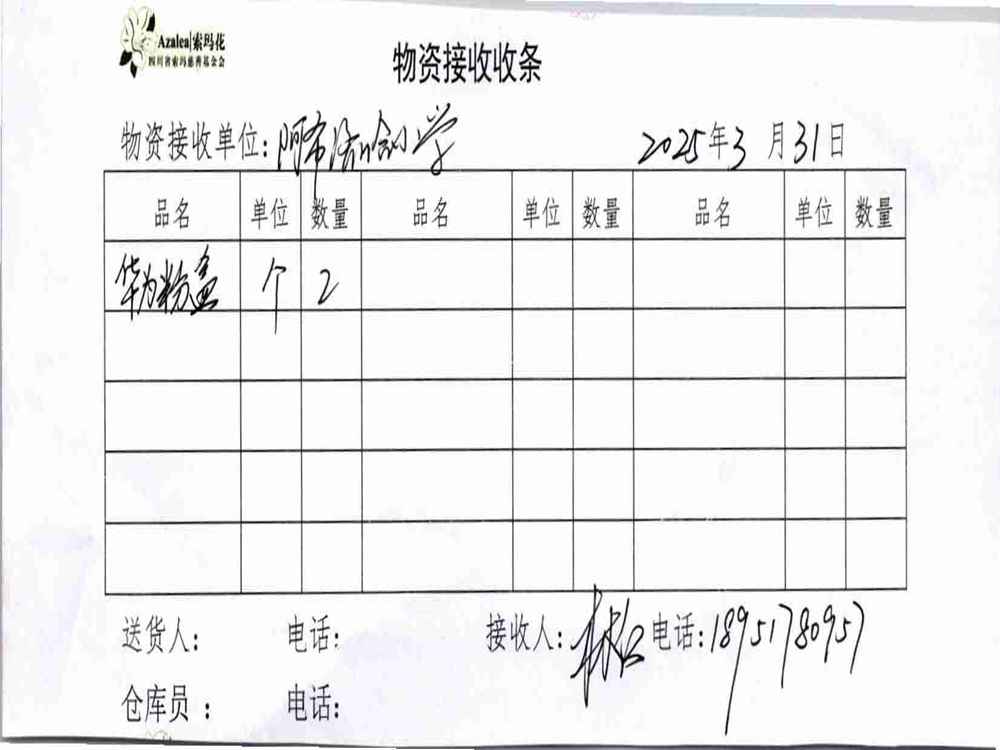 Azalea|索玛花
四川省索玛慈善基金会
物资接收收条
物资接收单位: 阿布洛哈小学 2025年3月31日
品名 单位 数量 品名 单位 数量 品名 单位 数量
华为粉盒 个 2
送货人: 电话: 接收人: 电话: 18951780957
仓库员: 电话: